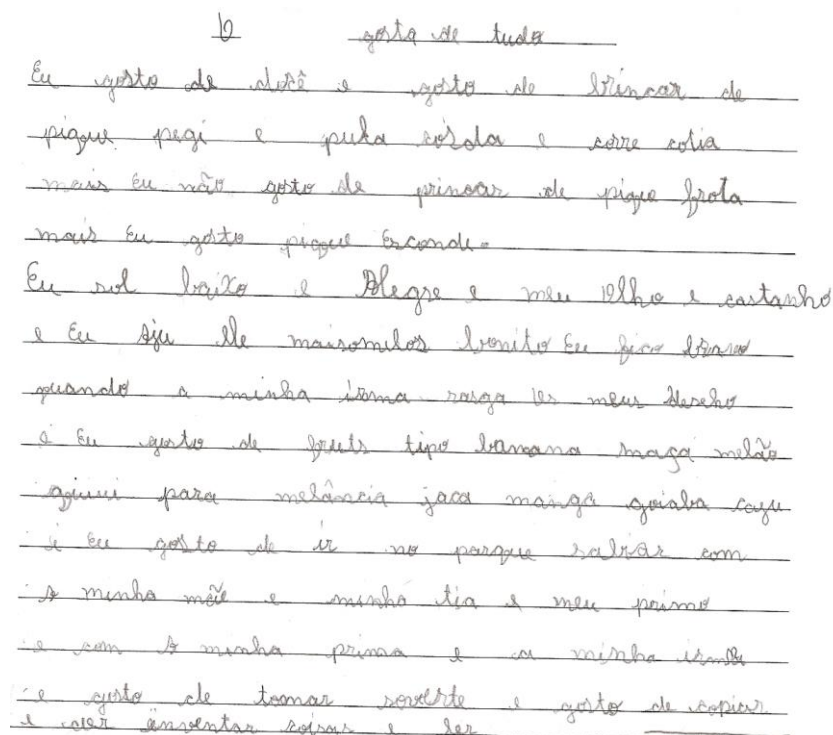 gosta de tudo
Eu gosto de docê e gosto de brincar de
pique pegi e pula corda e corre cotia
mais Eu não gosto de princar de pique frota
mais Eu gosto pique Esconde.
Eu sol baixo e Alegre e meu olho e castanho
e Eu aju bonito Eu fico
quando a minha irama rasga os meus deseho
e Eu gosto de fruts tipo banana maçã melão
para melância jaca manga goiaba caju
i Eu gosto de ir no parque com
A minha mãe e minha tia e meu primo
e com A minha prima e a minha
e gosto de tomar soverte e gosto de copiar
e inventar coisas e ler